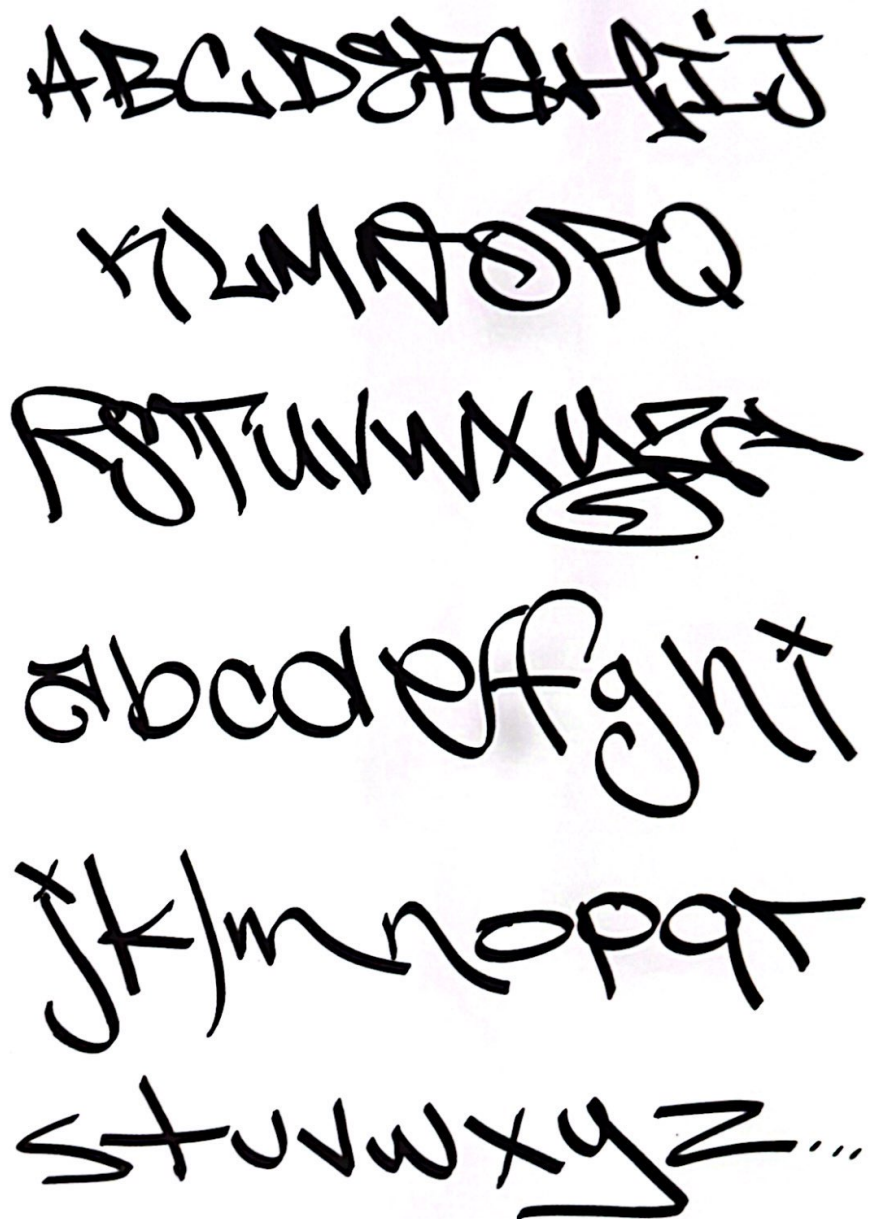 ABCDEFGHIJ
KLMNOPQ
RSTUVWXYZ
abcdeffghi
jklmnopqr
stuvwxyz...